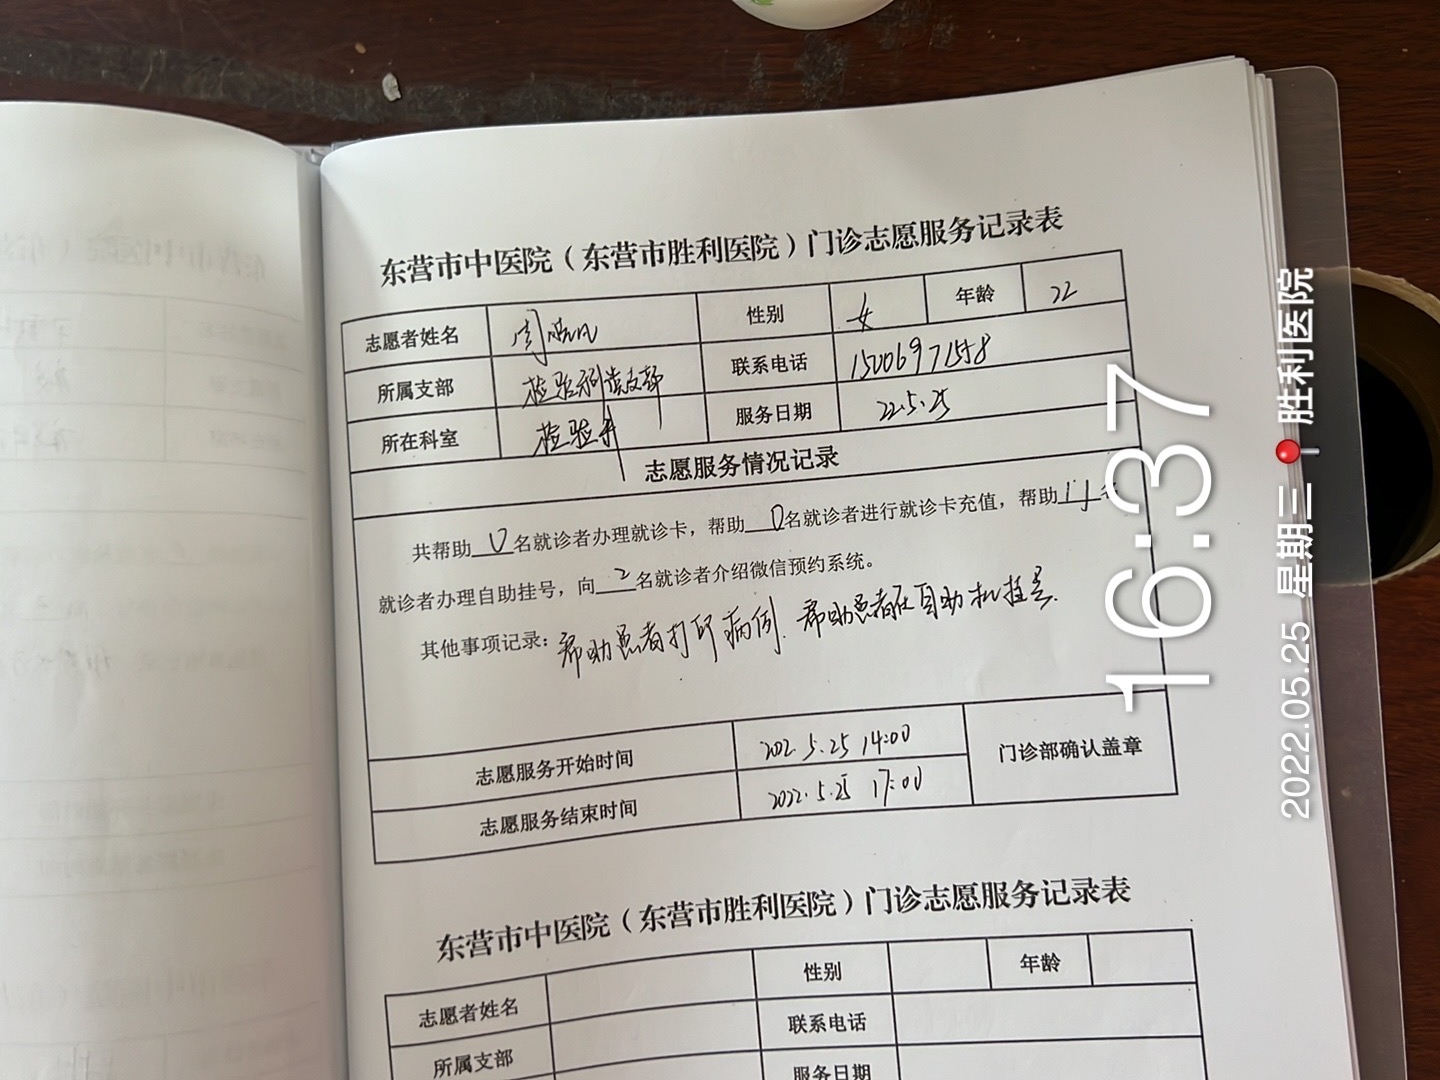 东营市中医院（东营市胜利医院）门诊志愿服务记录表
志愿者姓名 周 性别 女 年龄 22
所属支部 检验科党支部 联系电话
所在科室 检验科 服务日期 22.5.25
志愿服务情况记录
共帮助 0 名就诊者办理就诊卡，帮助 0 名就诊者进行就诊卡充值，帮助 11 名
就诊者办理自助挂号，向 2 名就诊者介绍微信预约系统。
其他事项记录：帮助患者打印病例、帮助患者在自助机挂号.
志愿服务开始时间 202 5.25 14:00 门诊部确认盖章
志愿服务结束时间 2022.5.25 17:00
东营市中医院（东营市胜利医院）门诊志愿服务记录表
志愿者姓名 性别 年龄
所属支部 联系电话
服务日期
16:37
2022.05.25 星期三 胜利医院